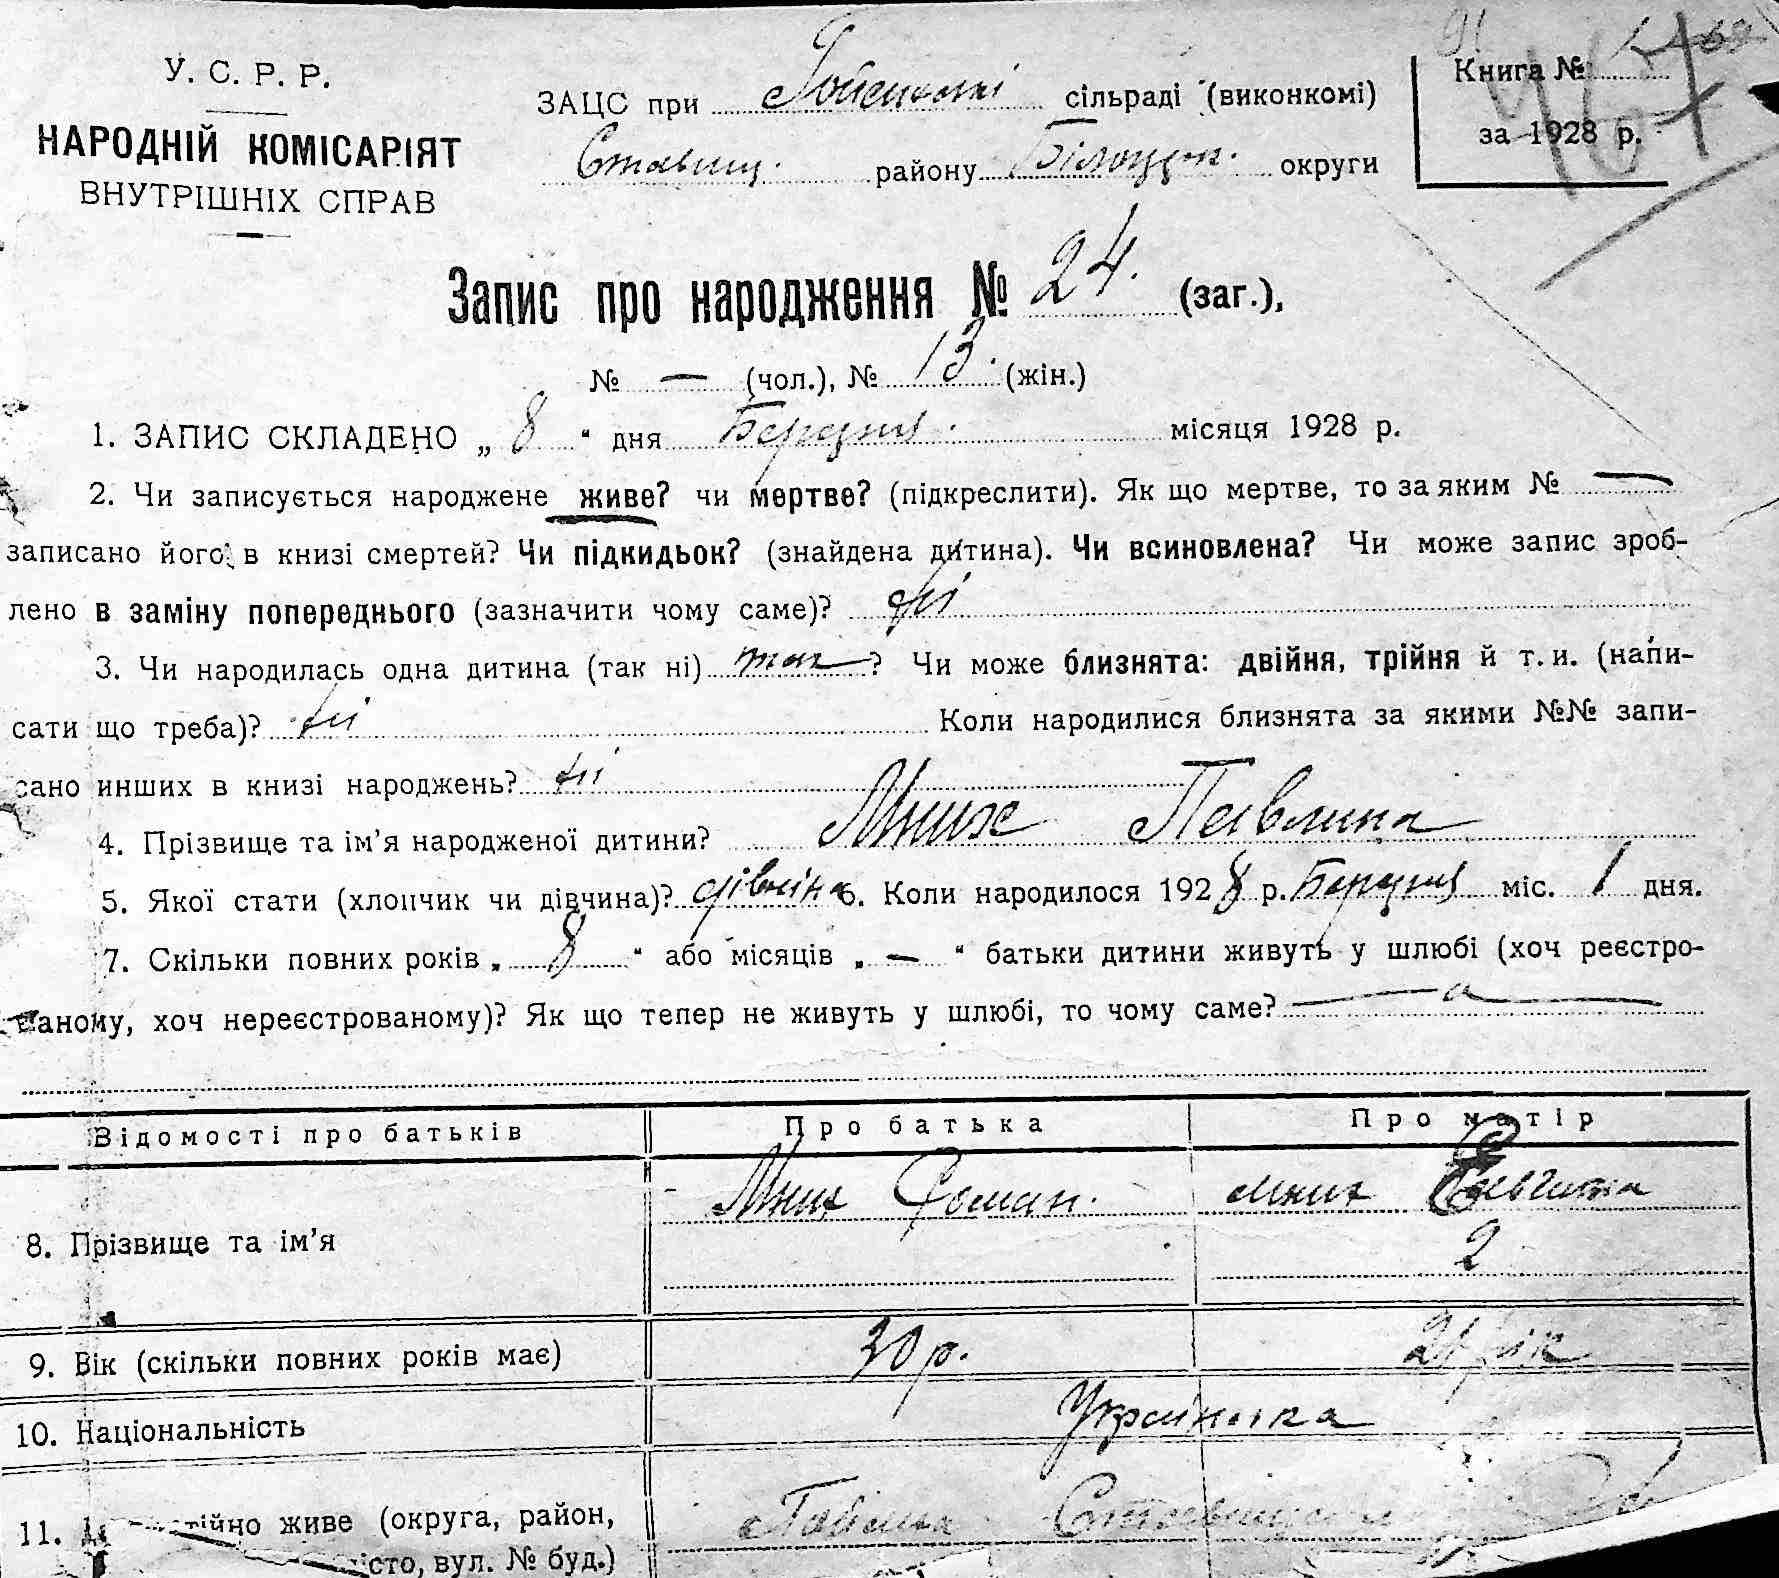 У. С. Р. Р.
НАРОДНІЙ КОМІСАРІЯТ
ВНУТРІШНІХ СПРАВ
ЗАЦС при сільраді (виконкомі)
Ставищ. району Білоцерк. округи
Книга №
за 1928 р.
Запис про народження № 24. (заг.),
№ — (чол.), № 13. (жін.)
1. ЗАПИС СКЛАДЕНО „ 8 “ дня Березня. місяця 1928 р.
2. Чи записується народжене живе? чи мертве? (підкреслити). Як що мертве, то за яким № —
записано його в книзі смертей? Чи підкидьок? (знайдена дитина). Чи всиновлена? Чи може запис зроб-
лено в заміну попереднього (зазначити чому саме)? ні
3. Чи народилась одна дитина (так ні) так ? Чи може близнята: двійня, трійня й т. и. (напи-
сати що треба)? ні Коли народилися близнята за якими №№ запи-
сано инших в книзі народжень? ні
4. Прізвище та ім'я народженої дитини? Мних Павлина
5. Якої стати (хлопчик чи дівчина)? дівчина 6. Коли народилося 1928 р. Березня міс. 1 дня.
7. Скільки повних років „ 8 “ або місяців „ — “ батьки дитини живуть у шлюбі (хоч реєстро-
ваному, хоч нереєстрованому)? Як що тепер не живуть у шлюбі, то чому саме? —
Відомості про батьків Про батька Про матір
8. Прізвище та ім'я Мних Роман. Мних
2
9. Вік (скільки повних років має) 30 р.
10. Національність Українська
11. живе (округа, район,
вул. № буд.)